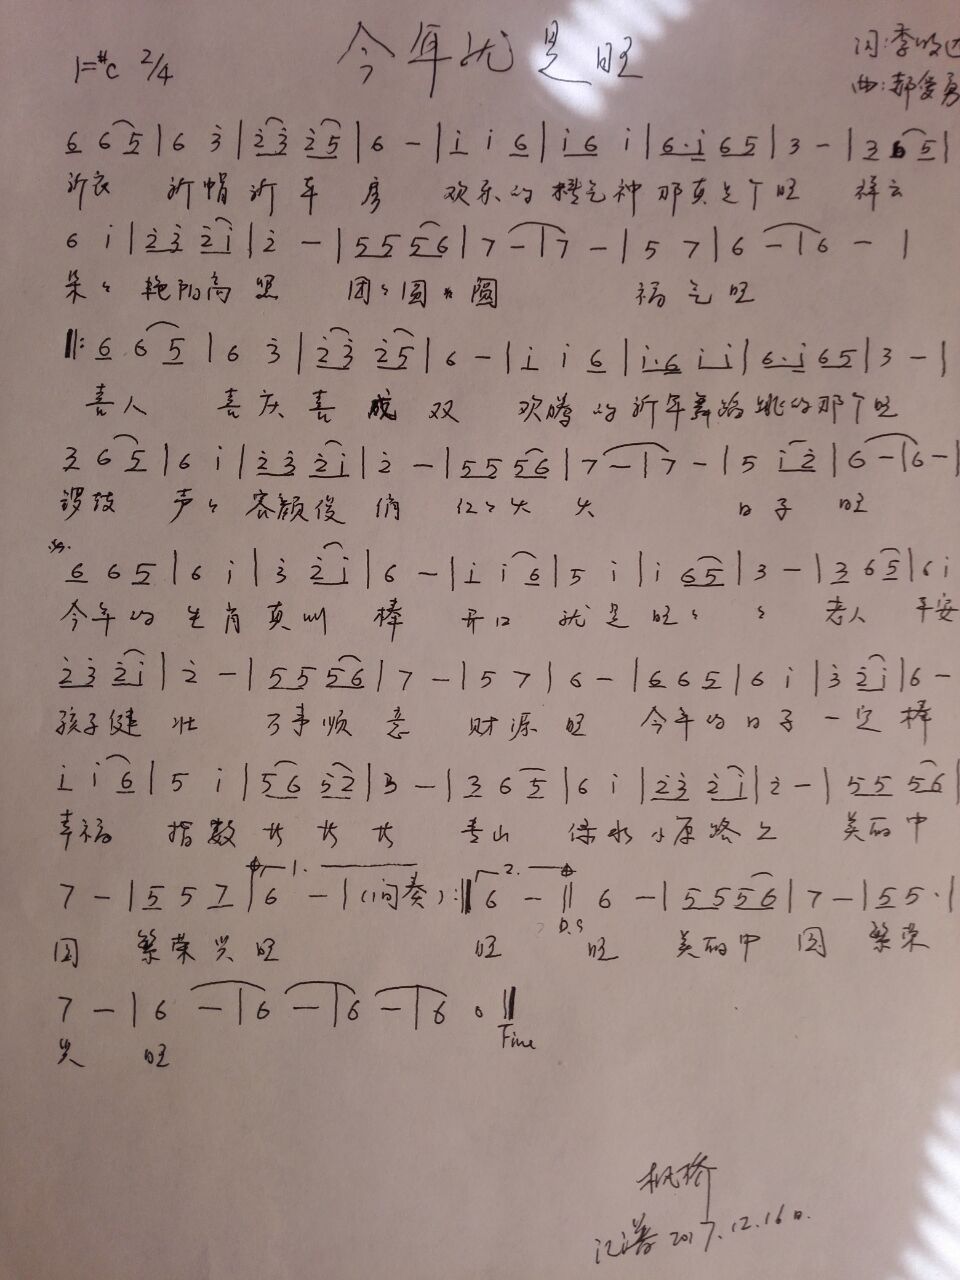 今年就是旺
1=#C 2/4
词:李
曲:郝俊勇
6 6 5 | 6 3 | 2 3 2 5 | 6 – | i i 6 | i 6 i | 6·i 6 5 | 3 – | 3 6 5 |
新衣 新帽 新年 房 欢乐的 精气神 那真是个 旺 祥云
6 i | 2 3 2 i | 2 – | 5 5 5 6 | 7 – | 7 – | 5 7 | 6 – | 6 – |
朵々 艳阳高 照 团々圆々 圆 福气旺
‖: 6 6 5 | 6 3 | 2 3 2 5 | 6 – | i i 6 | i·6 i i | 6·i 6 5 | 3 – |
喜人 喜庆 喜 成 双 欢腾的 新年舞蹈 跳的那个旺
3 6 5 | 6 i | 2 3 2 i | 2 – | 5 5 5 6 | 7 – | 7 – | 5 i 2 | 6 – | 6 – |
锣鼓 声々 容颜俊 俏 红々火 火 日子 旺
6 6 5 | 6 i | 3 2 i | 6 – | i i 6 | 5 i | i 6 5 | 3 – | 3 6 5 | 6 i
今年的 生肖 真叫 棒 开口 就是 旺々 々 老人 平安
2 3 2 i | 2 – | 5 5 5 6 | 7 – | 5 7 | 6 – | 6 6 5 | 6 i | 3 2 i | 6 –
孩子健 壮 万事顺 意 财源 旺 今年的 日子 一定 棒
i i 6 | 5 i | 5 6 5 2 | 3 – | 3 6 5 | 6 i | 2 3 2 i | 2 – | 5 5 5 6 |
幸福 指数 长 长 长 青山 绿水 小康路 上 美丽中
7 – | 5 5 7 | 6 – | (间奏) :‖ 6 – ‖ 6 – | 5 5 5 6 | 7 – | 5 5 · |
1. 2. D.S
国 繁荣兴 旺 旺 旺 美丽中 国 繁荣
7 – | 6 – | 6 – | 6 – | 6 0 ‖
Fine
兴 旺
枫桥
记谱 2017.12.16日.